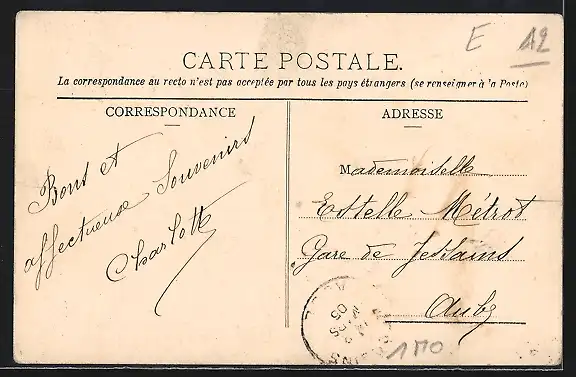 E A2
CARTE POSTALE.
La correspondance au recto n'est pas acceptée par tous les pays étrangers (se renseigner à la Poste)
CORRESPONDANCE
ADRESSE
Bons et
affectueux Souvenirs
Charlotte
Mademoiselle
Estelle Métrot
Gare de Jessains
Aube
05
1M0